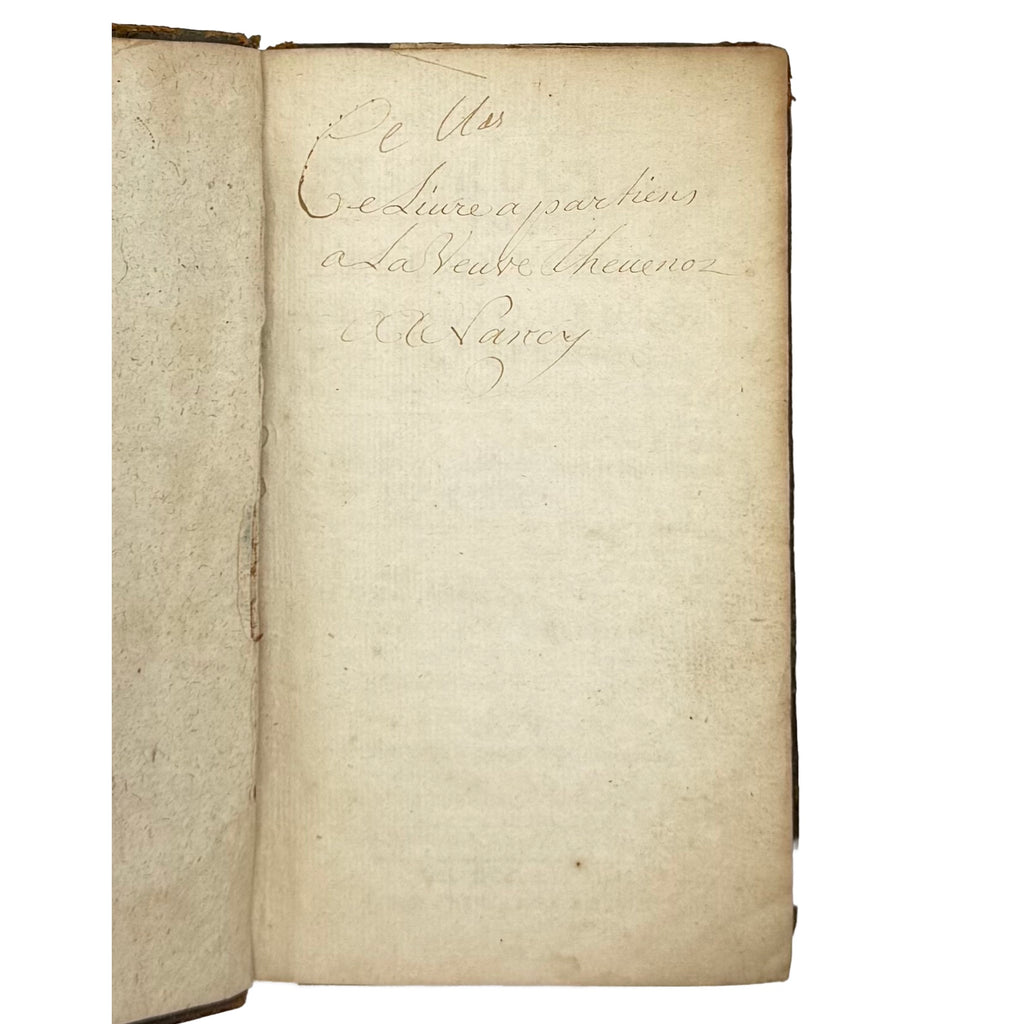 Ce
Ce Livre apartiens
a La Veuve Thevenoz
A Nancy